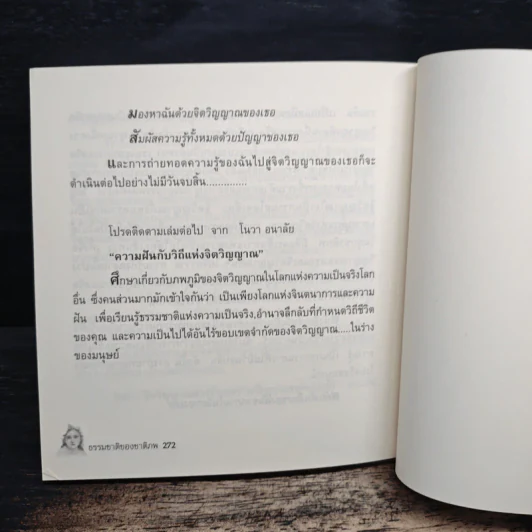 มองหาฉันด้วยจิตวิญญาณของเธอ
สัมผัสความรู้ทั้งหมดด้วยปัญญาของเธอ
และการถ่ายทอดความรู้ของฉันไปสู่จิตวิญญาณของเธอก็จะ
ดำเนินต่อไปอย่างไม่มีวันจบสิ้น.............
โปรดติดตามเล่มต่อไป จาก โนวา อนาลัย
"ความฝันกับวิถีแห่งจิตวิญญาณ"
ศึกษาเกี่ยวกับภพภูมิของจิตวิญญาณในโลกแห่งความเป็นจริงโลก
อื่น ซึ่งคนส่วนมากมักเข้าใจกันว่า เป็นเพียงโลกแห่งจินตนาการและความ
ฝัน เพื่อเรียนรู้ธรรมชาติแห่งความเป็นจริง,อำนาจลึกลับที่กำหนดวิถีชีวิต
ของคุณ และความเป็นไปได้อันไร้ขอบเขตจำกัดของจิตวิญญาณ.....ในร่าง
ของมนุษย์
ธรรมชาติของชาติภพ 272